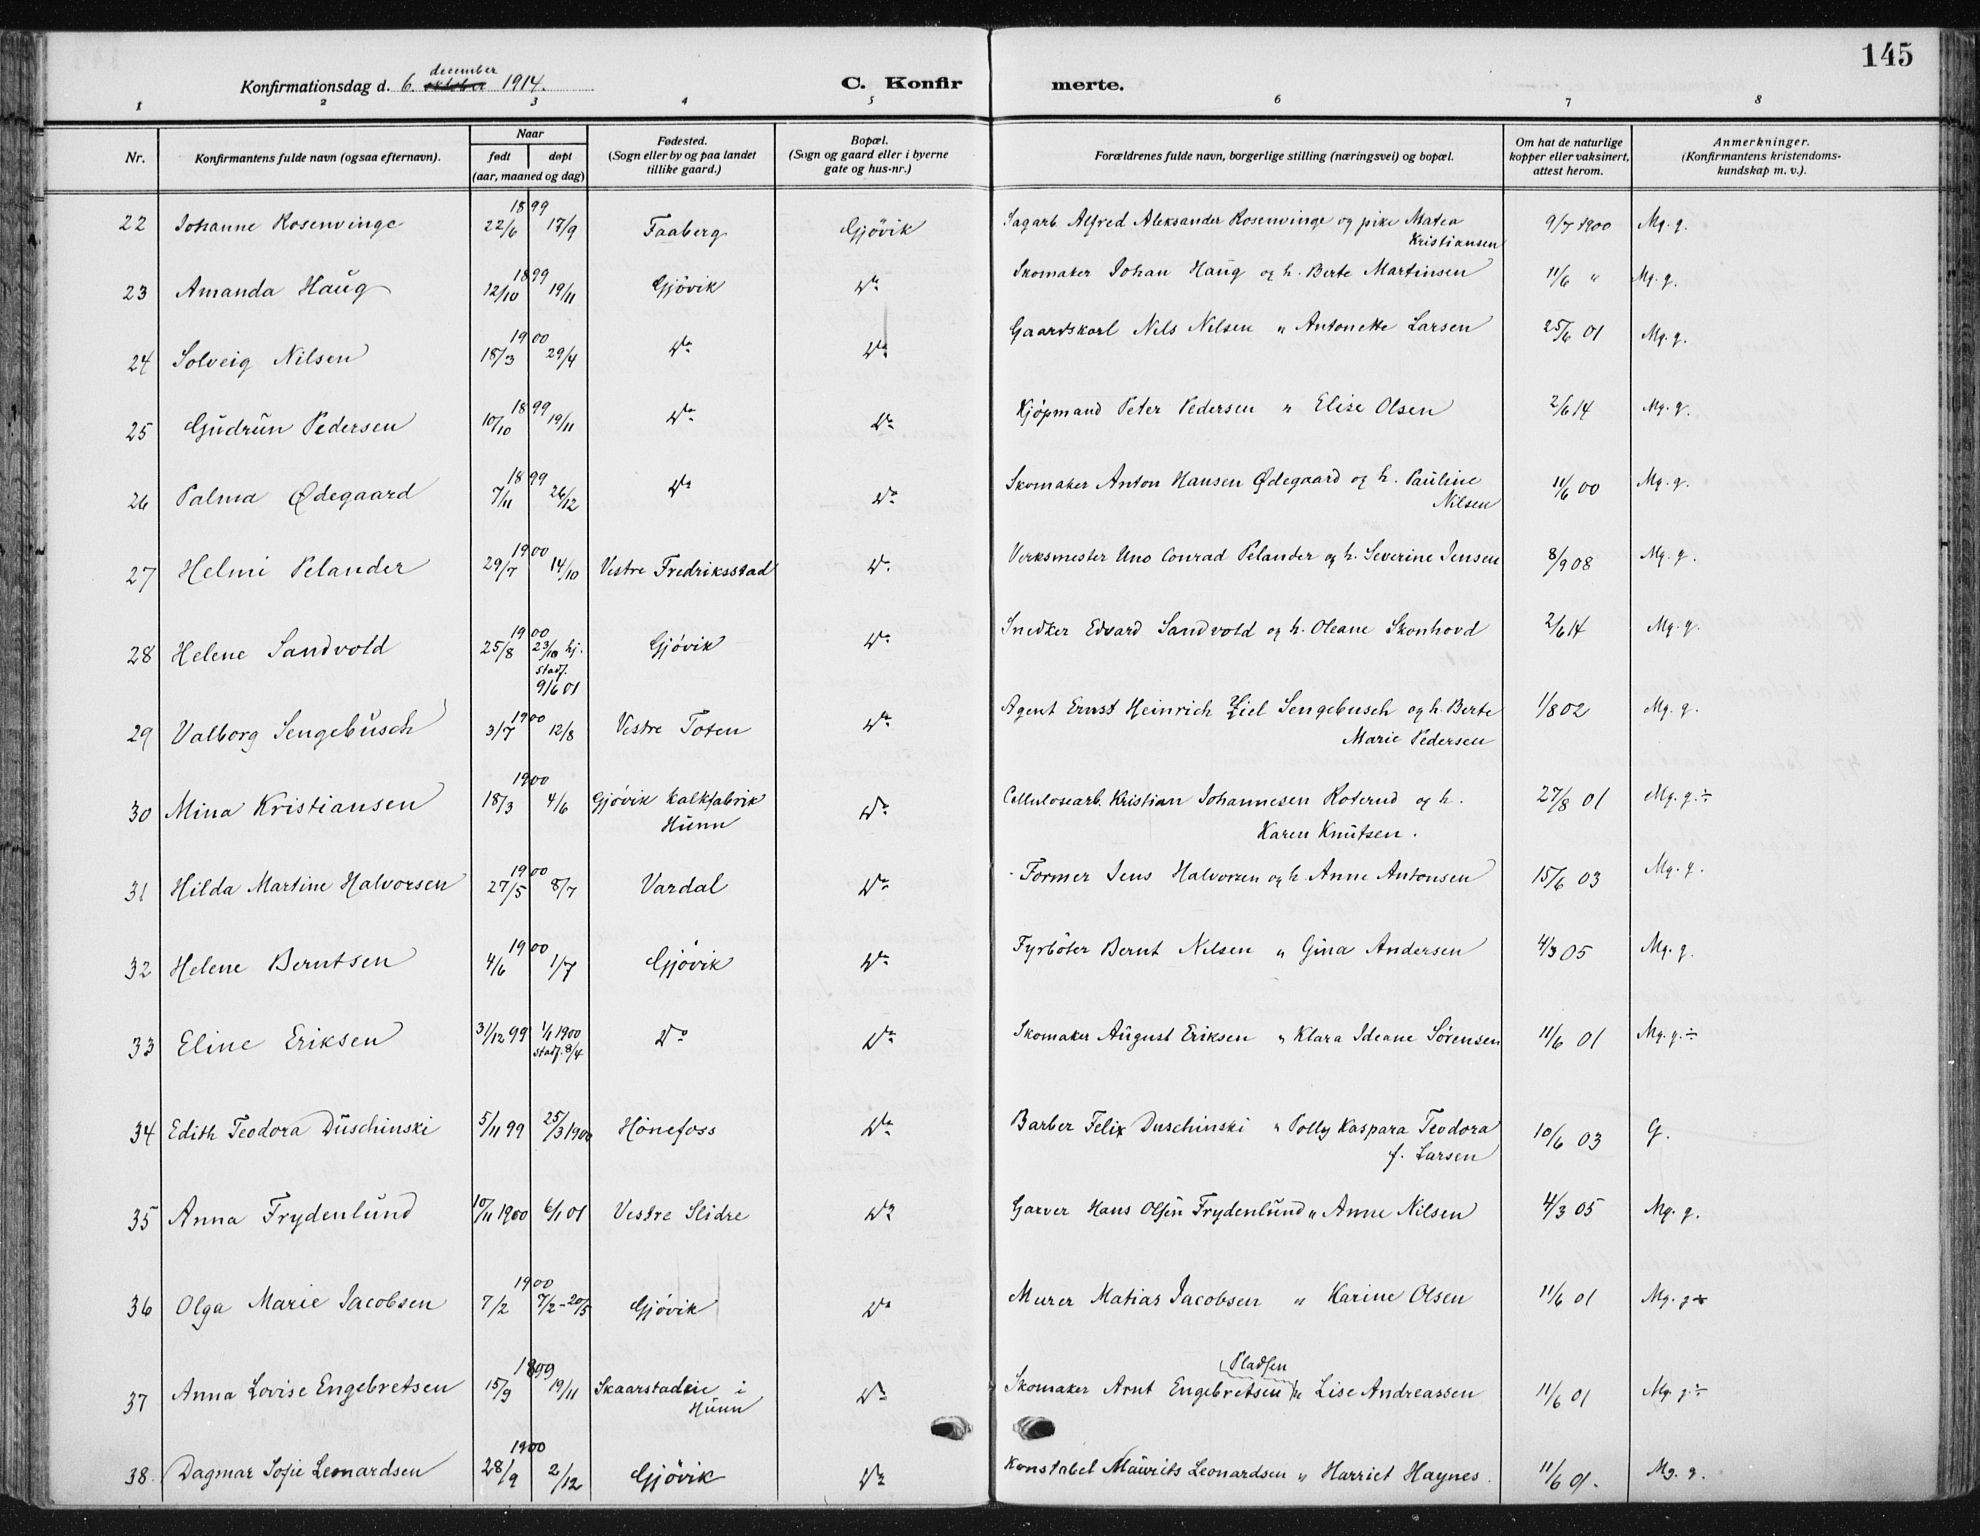 145
december
Konfirmationsdag d. 6. oktober 1914. C. Konfirmerte.
1 2 3 4 5 6 7 8
Nr. Konfirmantens fulde navn (ogsaa efternavn). Naar født døpt (aar, maaned og dag) Fødested. (Sogn eller by og paa landet tillike gaard.) Bopæl. (Sogn og gaard eller i byerne gate og hus-nr.) Forældrenes fulde navn, borgerlige stilling (næringsvei) og bopæl. Om hat de naturlige kopper eller vaksinert, attest herom. Anmerkninger. (Konfirmantens kristendoms-kundskap m. v.).
22 Johanne Rosenvinge 1899 22/6 17/9 Faaberg Gjövik Sagarb. Alfred Aleksander Rosenvinge og pike Matea Kristiansen 9/7 1900 Mg. g.
23 Amanda Haug 1899 12/10 19/11 Gjövik Do Skomaker Johan Haug og h. Berte Martinsen 11/6 " Mg. g.
24 Solveig Nilsen 1900 18/3 29/4 Do Do Gaardskarl Nils Nilsen " Antonette Larsen 25/6 01 Mg. g.
25 Gudrun Pedersen 1899 10/10 19/11 Do Do Kjöpmand Peter Pedersen " Elise Olsen 2/6 14 Mg. g.
26 Palma Ødegaard 1899 7/11 26/12 Do Do Skomaker Anton Hansen Ødegaard og h. Pauline Nilsen 11/6 00 Mg. g.
27 Helmi Pelander 1900 29/7 14/10 Vestre Fredriksstad Do Verksmester Uno Conrad Pelander og h. Severine Jensen 8/9 08 Mg. g.
28 Helene Sandvold 1900 25/8 23/10 hj. stadf. 9/6 01 Gjövik Do Snedker Edvard Sandvold og h. Oleane Skonhovd 2/6 14 Mg. g.
29 Valborg Sengebusch 1900 3/7 12/8 Vestre Toten Do Agent Ernst Heinrich Ziel Sengebusch og h. Berte Marie Pedersen 1/8 02 Mg. g.
30 Mina Kristiansen 1900 18/3 4/6 Gjövik Kalkfabrik Hunn Do Cellulosearb. Kristian Johannesen Roterud og h. Karen Knutsen. 27/8 01 Mg. g. ÷
31 Hilda Martine Halvorsen 1900 27/5 8/7 Vardal Do Former Jens Halvorsen og h. Anne Antonsen 15/6 03 Mg. g.
32 Helene Berntsen 1900 4/6 1/7 Gjövik Do Fyrböter Bernt Nilsen " Gina Andersen 4/3 05 Mg. g.
33 Eline Eriksen 31/12 99 1/1 1900 stadf. 8/4 Do Do Skomaker August Eriksen " Klara Ideane Sørensen 11/6 01 Mg. g. ÷
34 Edith Teodora Duschinski 5/11 99 25/3 1900 Hönefoss Do Barber Felix Duschinski " Polly Kaspara Teodora f. Larsen 10/6 03 G.
35 Anna Frydenlund 10/11 1900 6/1 01 Vestre Slidre Do Garver Hans Olsen Frydenlund " Anne Nilsen 4/3 05 Mg. g.
36 Olga Marie Jacobsen 1900 7/2 7/2-20/5 Gjövik Do Murer Matias Jacobsen " Karine Olsen 11/6 01 Mg. g ÷
37 Anna Lovise Engebretsen 1899 15/9 19/11 Skaarstadeie i Hunn Do Skomaker Arnt Engebretsen Pladsen " Lise Andreassen 11/6 01 Mg. g ÷
38. Dagmar Sofie Leonardsen 1900 28/9 2/12 Gjövik Do Konstabel Maurits Leonardsen " Harriet Haynes. 11/6 01. Mg. g.